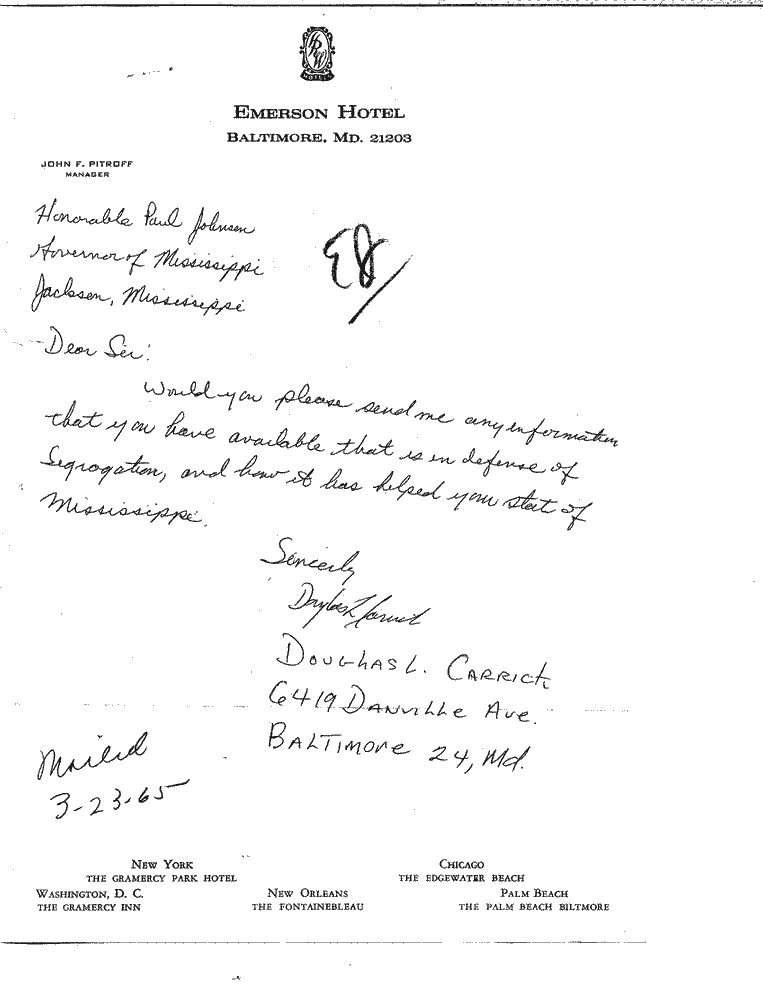 HRW
HOTELS
EMERSON HOTEL
BALTIMORE, MD. 21203
JOHN F. PITROFF
MANAGER
Honorable Paul Johnson
Governor of Mississippi
Jackson, Mississippi
Dear Sir:
Would you please send me any information
that you have available that is in defense of
Segrogation, and how it has helped your stat of
Mississippi.
Sincerly
DOUGHLAS L. CARRICK
6419 DANVILLE AVE.
BALTIMORE 24, Md.
Mailed
3-23-65
NEW YORK
THE GRAMERCY PARK HOTEL
CHICAGO
THE EDGEWATER BEACH
WASHINGTON, D. C.
THE GRAMERCY INN
NEW ORLEANS
THE FONTAINEBLEAU
PALM BEACH
THE PALM BEACH BILTMORE